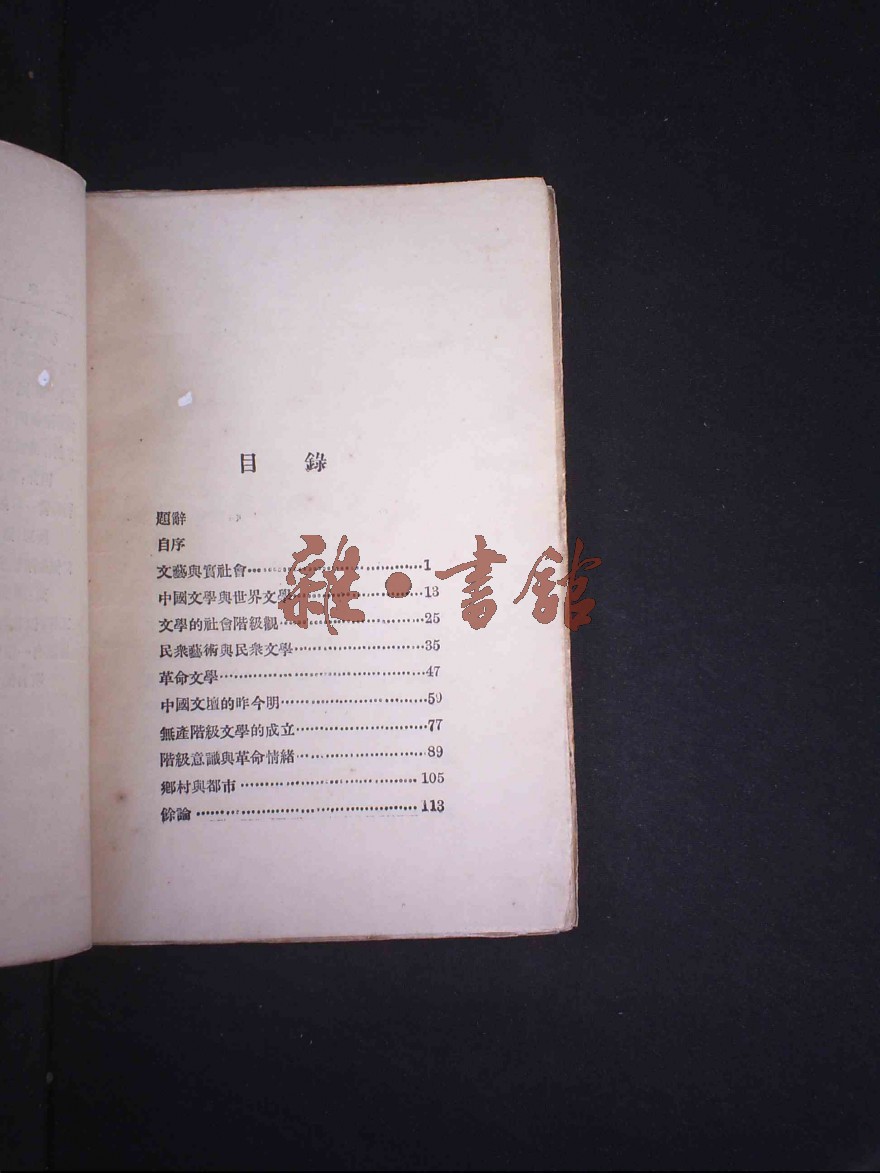 目錄
題辭
自序
文藝與實社會…………………………1
中國文學與世界文學…………………13
文學的社會階級觀……………………25
民衆藝術與民衆文學…………………35
革命文學………………………………47
中國文壇的昨今明……………………59
無產階級文學的成立…………………77
階級意識與革命情緒…………………89
鄉村與都市……………………………105
餘論……………………………………113
雜·書館